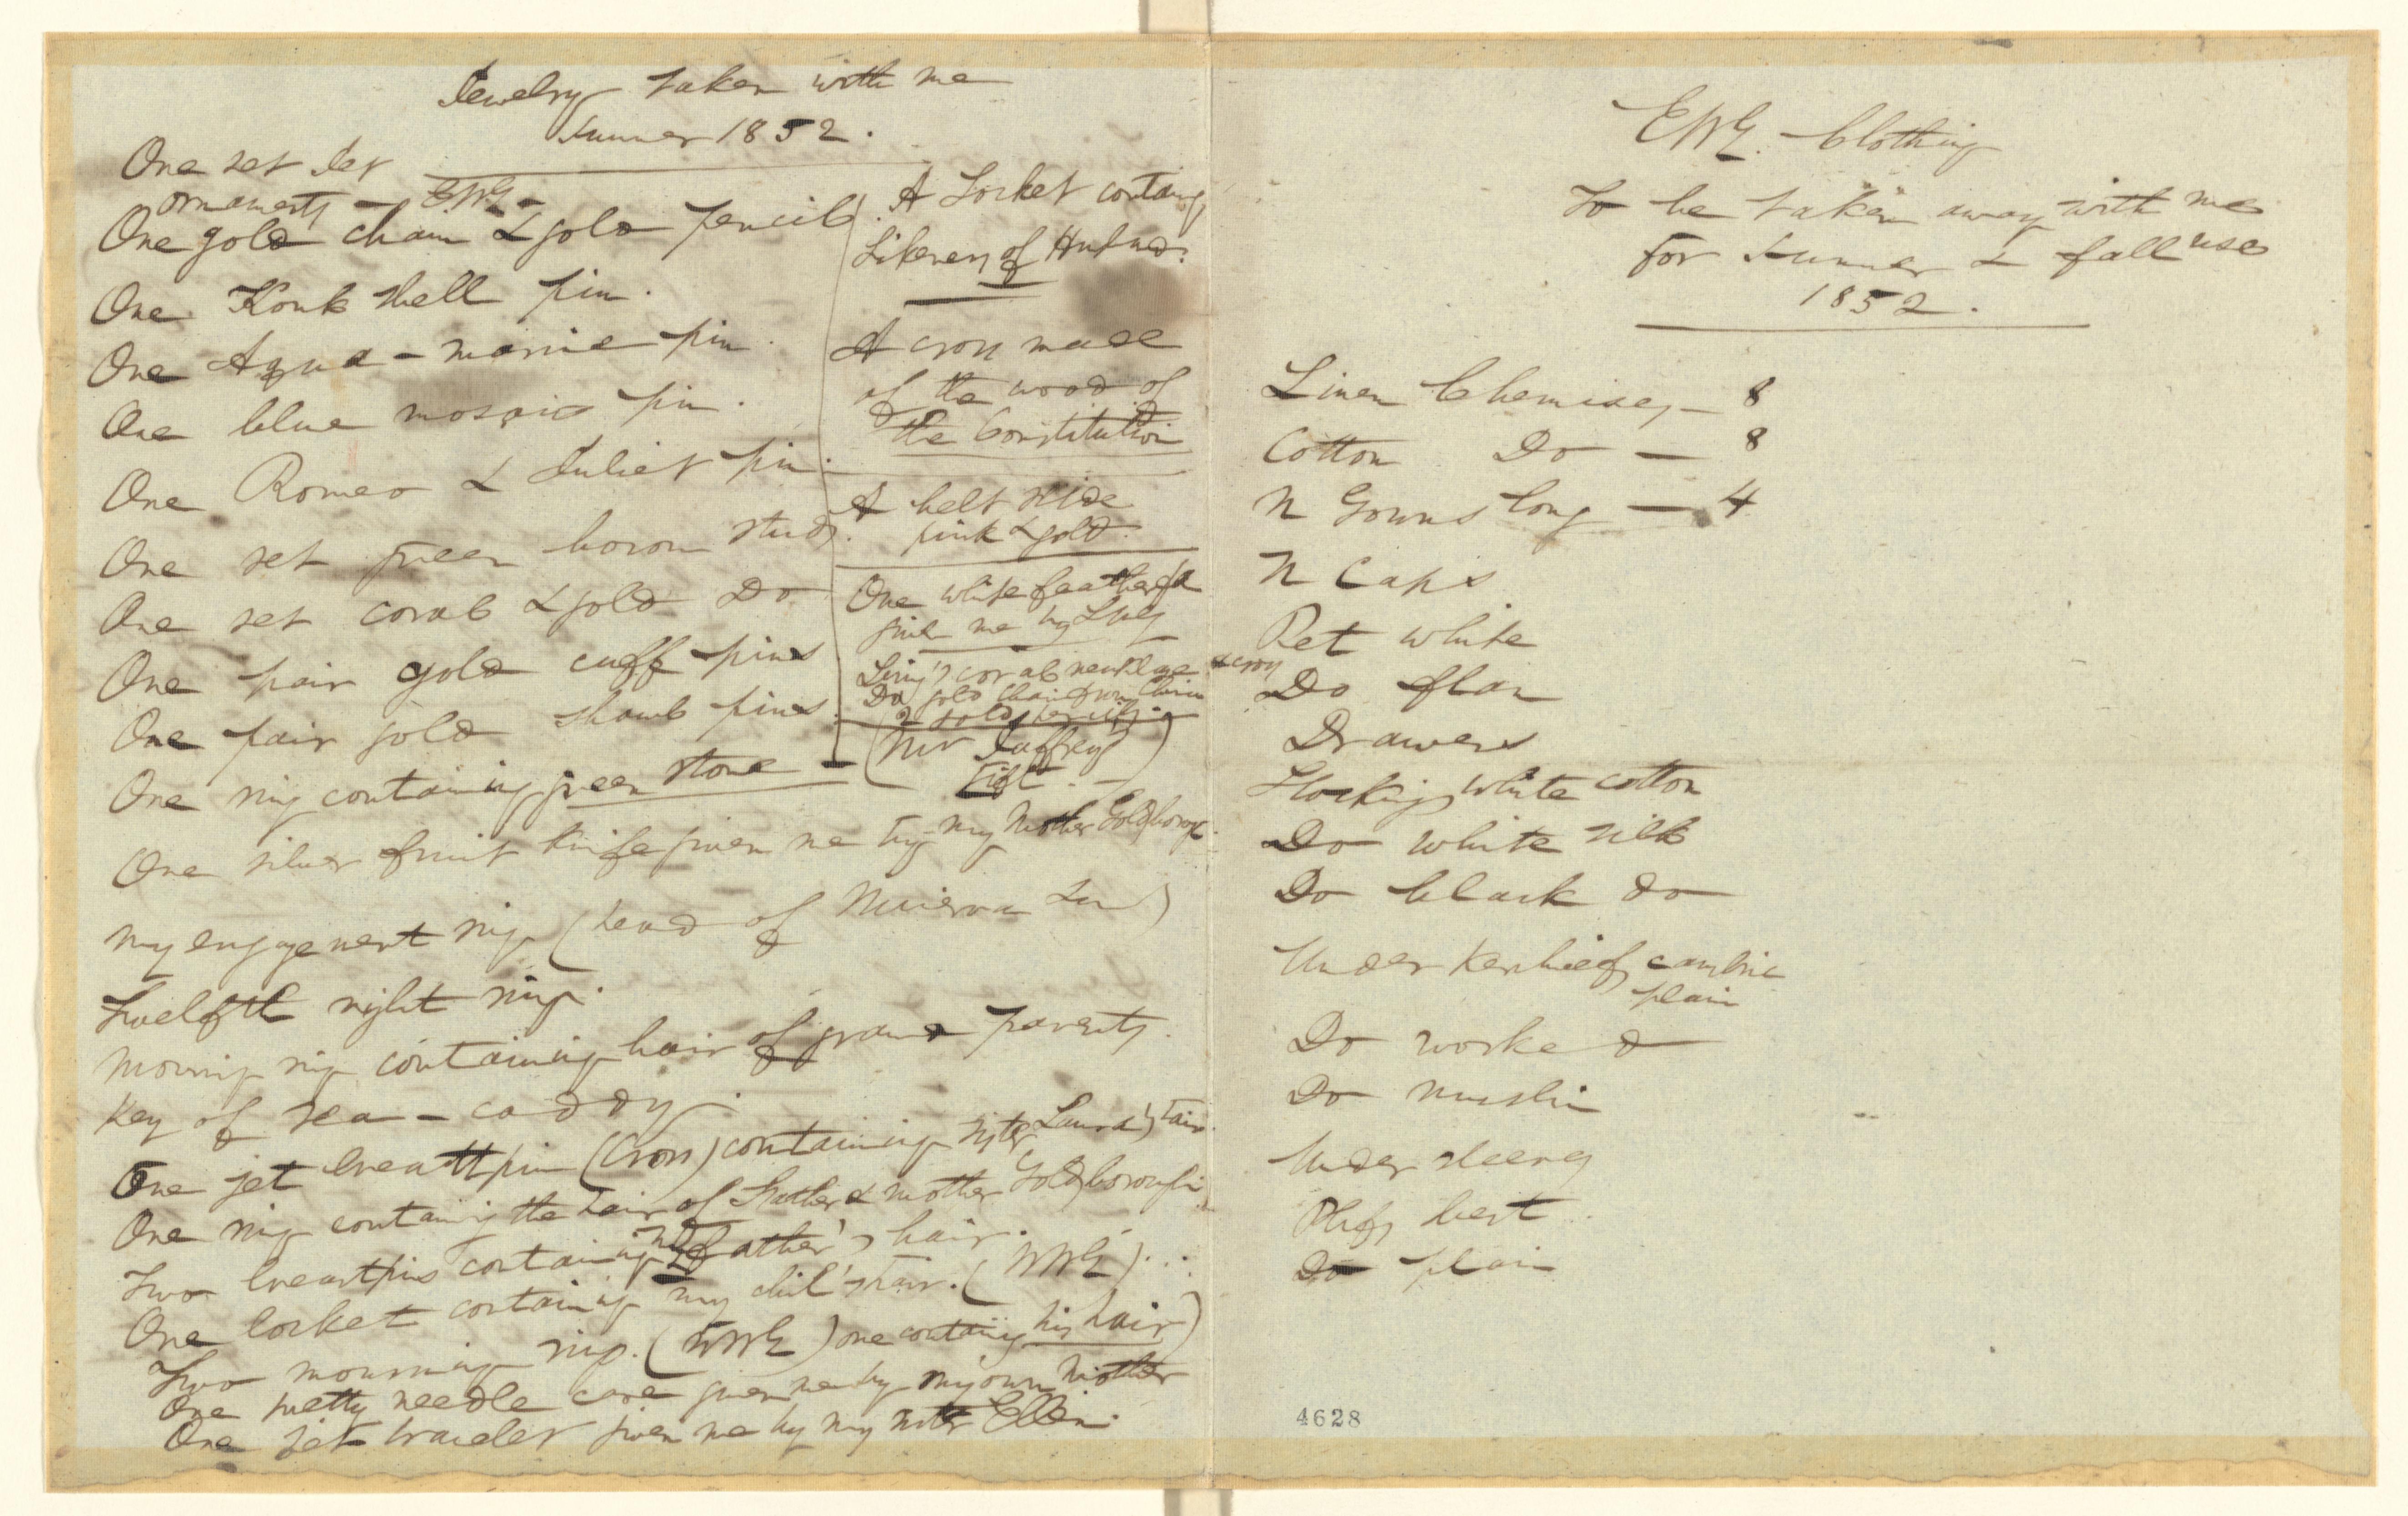 Jewelry taken with me
Summer 1852.
One set Jet
ornaments - EWG -
One gold chain & gold pencil
One Konk shell pin.
One Aqua-marine pin.
One blue mosaic pin.
One Romeo & Juliet pin.
One set green bosom studs.
One set coral & gold Do
One pair gold cuff pins
One pair gold shawl pins.
One ring containing green stone - (Mr Jaffrey's
Gift. - )
A Locket containg
Likeness of Husband.
A cross made
of the wood of
the Constitution
A belt slide
pink & gold.
One white feather fan
given me by LWG
coral necklace & cross
Do gold chain
2 gold pencils.
One silver fruit knife given me by my Mother Goldsborough.
My engagement ring (head of Minerva)
Twelfth night ring.
Mourning ring containing hair of grand parents.
Key of tea-caddy.
One jet breastpin (Cross) containing sister Laura's hair.
One ring containing the hair of Father & mother Goldsborough
Two breastpins containing my Father's hair.
One locket containing my child's hair. (WWG)...
Two mourning rings. (WWG) one containing his hair)
One pretty needle case given me by my own Mother
One jet bracelet given me by my sister Ellen.
EWG. Clothing
To be taken away with me
for Summer & fall use
1852.
Linen Chemises - 8
Cotton Do - 8
N Gowns long - 4
N Caps
Pet white
Do flan
Drawers
Stockings white cotton
Do white silk
Do black do
Under Kerchiefs cambric
plain
Do worked
Do muslin
Under sleeves
Hkfs best.
Do plain
4628